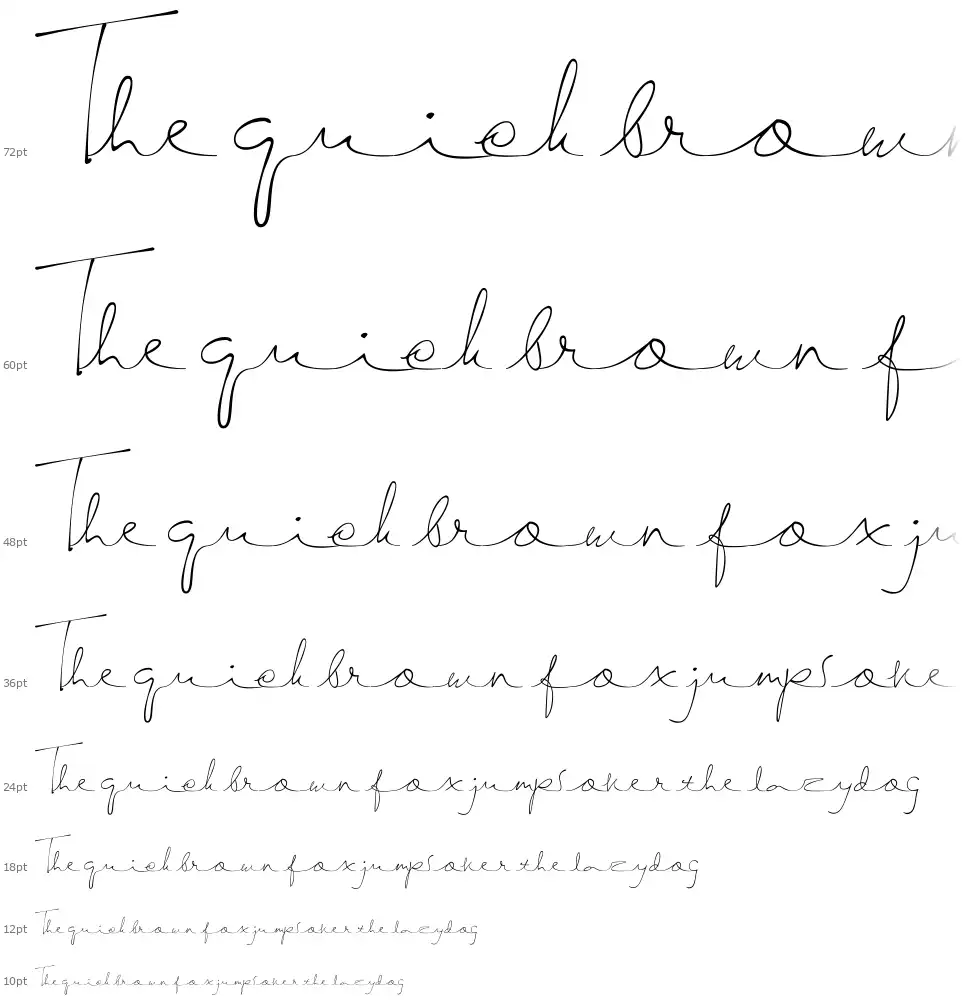 72pt The quick brown
60pt The quick brown f
48pt The quick brown fox ju
36pt The quick brown fox jumps ove
24pt The quick brown fox jumps over the lazy dog
18pt The quick brown fox jumps over the lazy dog
12pt The quick brown fox jumps over the lazy dog
10pt The quick brown fox jumps over the lazy dog